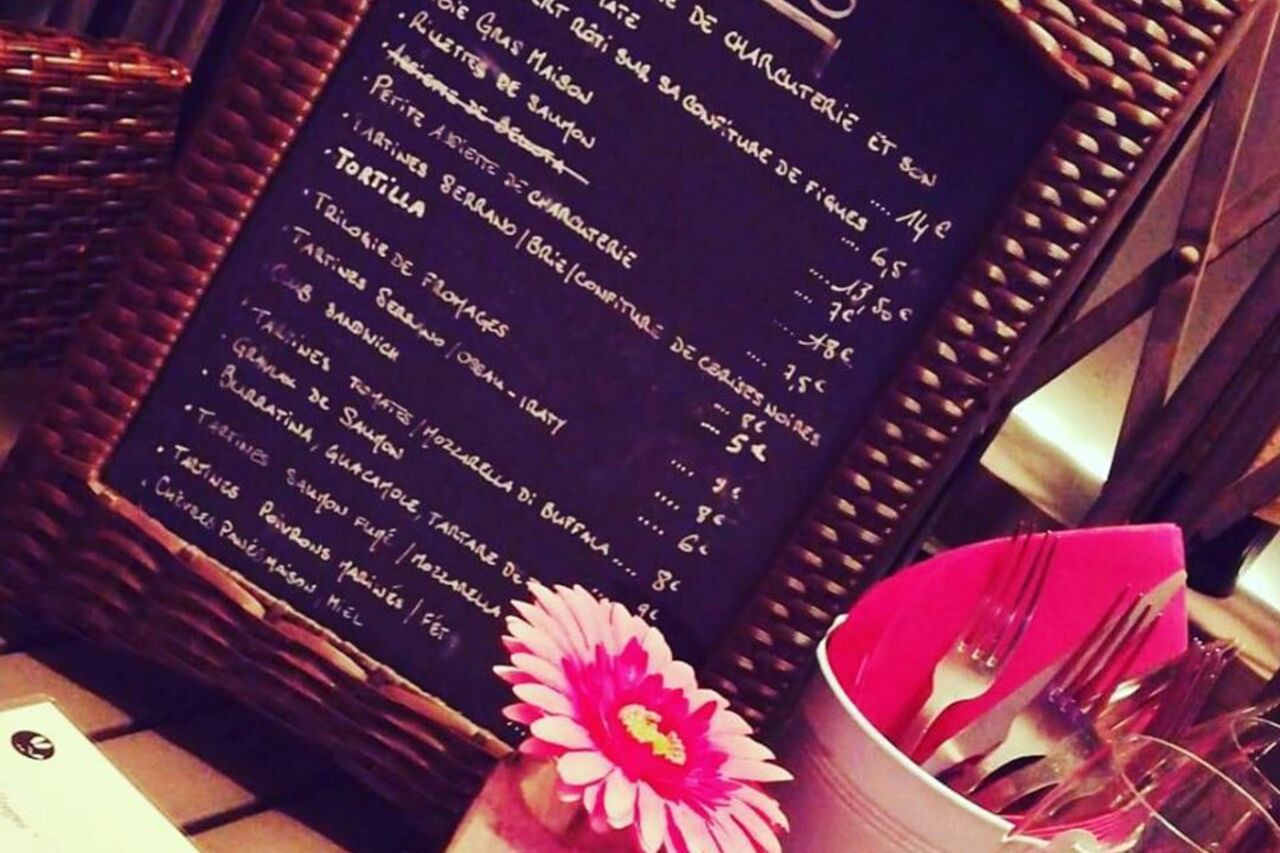 DE CHARCUTERIE ET SON
RÔTI SUR SA CONFITURE DE FIGUES .... 14€
GRAS MAISON ... 6,5
• RILLETTES DE SAUMON .... 13,50€
• ASSIETTE DE BELLOTA .... 7€
• PETITE ASSIETTE DE CHARCUTERIE .... 18€
• TARTINES SERRANO / BRIE / CONFITURE DE CERISES NOIRES .... 7,5€
• TORTILLA ... 8€
• TRILOGIE DE FROMAGES .... 5€
• TARTINES SERRANO / OSSAU-IRATY .... 9€
• CLUB SANDWICH .... 8€
• TARTINES TOMATES / MOZZARELLA DI BUFFALA .... 6€
• GRAVLAX DE SAUMON .... 8€
• BURRATINA, GUACAMOLE, TARTARE DE 9€
• TARTINES SAUMON FUMÉ / MOZZARELLA
• TARTINES POIVRONS MARINÉS / FÉT
• CHÈVRES PANÉS MAISON, MIEL